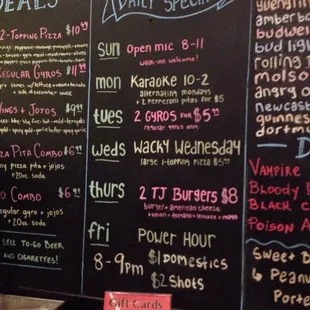 DEALS
2-Topping Pizza $10
Regular Gyros $11
Wings + JoJos $9
Pizza Pita Combo $6
pizza pita + jojos
+20oz soda
Combo $6
regular gyro + jojos
+20oz soda
SELL TO-GO BEER
AND CIGARETTES!
DAILY SPECIALS
sun Open mic 8-11
walk-ins welcome!
mon Karaoke 10-2
alternating mondays
+ 2 pepperoni pitas for $5
tues 2 GYROS for $5
regular gyros only
weds Wacky Wednesday
large 1-topping pizza $5
thurs 2 TJ Burgers $8
burger + american cheese
+ onion + tomato + lettuce + mayo
fri Power Hour
8-9pm $1 Domestics
$2 Shots
Gift Cards
yuengling
amber
budwei
bud light
rolling
molso
angry o
newcast
guinnes
dortm
Vampire
Bloody
Black C
Poison A
Sweet B
6 Peanu
Porte